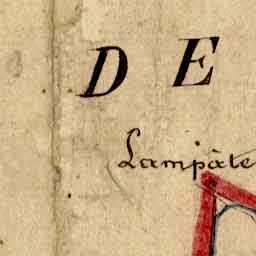 DE
Lampâte